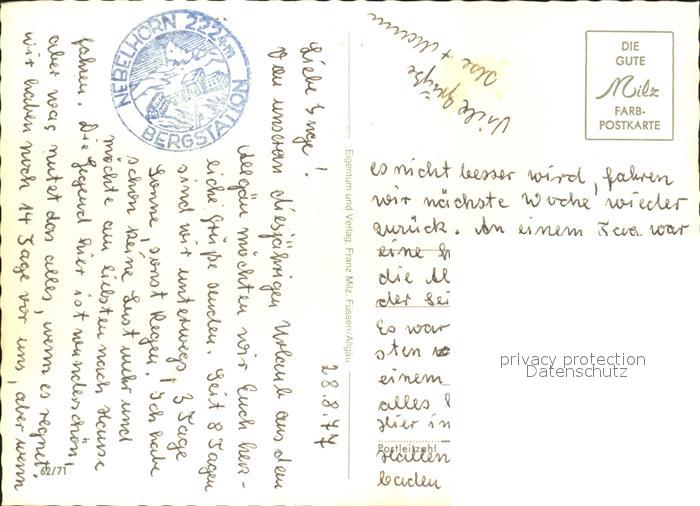 28.8.77
Liebe Inge!
Von unserem diesjährigen Urlaub aus dem
Allgäu möchten wir Euch herz-
liche Grüße senden. Seit 8 Tagen
sind wir unterwegs, 3 Tage
Sonne, sonst Regen. Ich habe
schon keine Lust mehr und
möchte am liebsten nach Hause
fahren. Die Gegend hier ist wunderschön,
aber was nutzt das alles, wenn es regnet.
wir haben noch 14 Tage vor uns, aber wenn
es nicht besser wird, fahren
wir nächste Woche wieder
zurück. An einem Tag war
eine
die
der
Es war
sten
einem
alles
Hier in
Hallen
baden
Viele Grüße
NEBELHORN 2224m
BERGSTATION
DIE
GUTE
Milz
FARB-
POSTKARTE
Eigentum und Verlag, Franz Milz, Füssen/Allgäu
Postleitzahl
62/71
privacy protection
Datenschutz